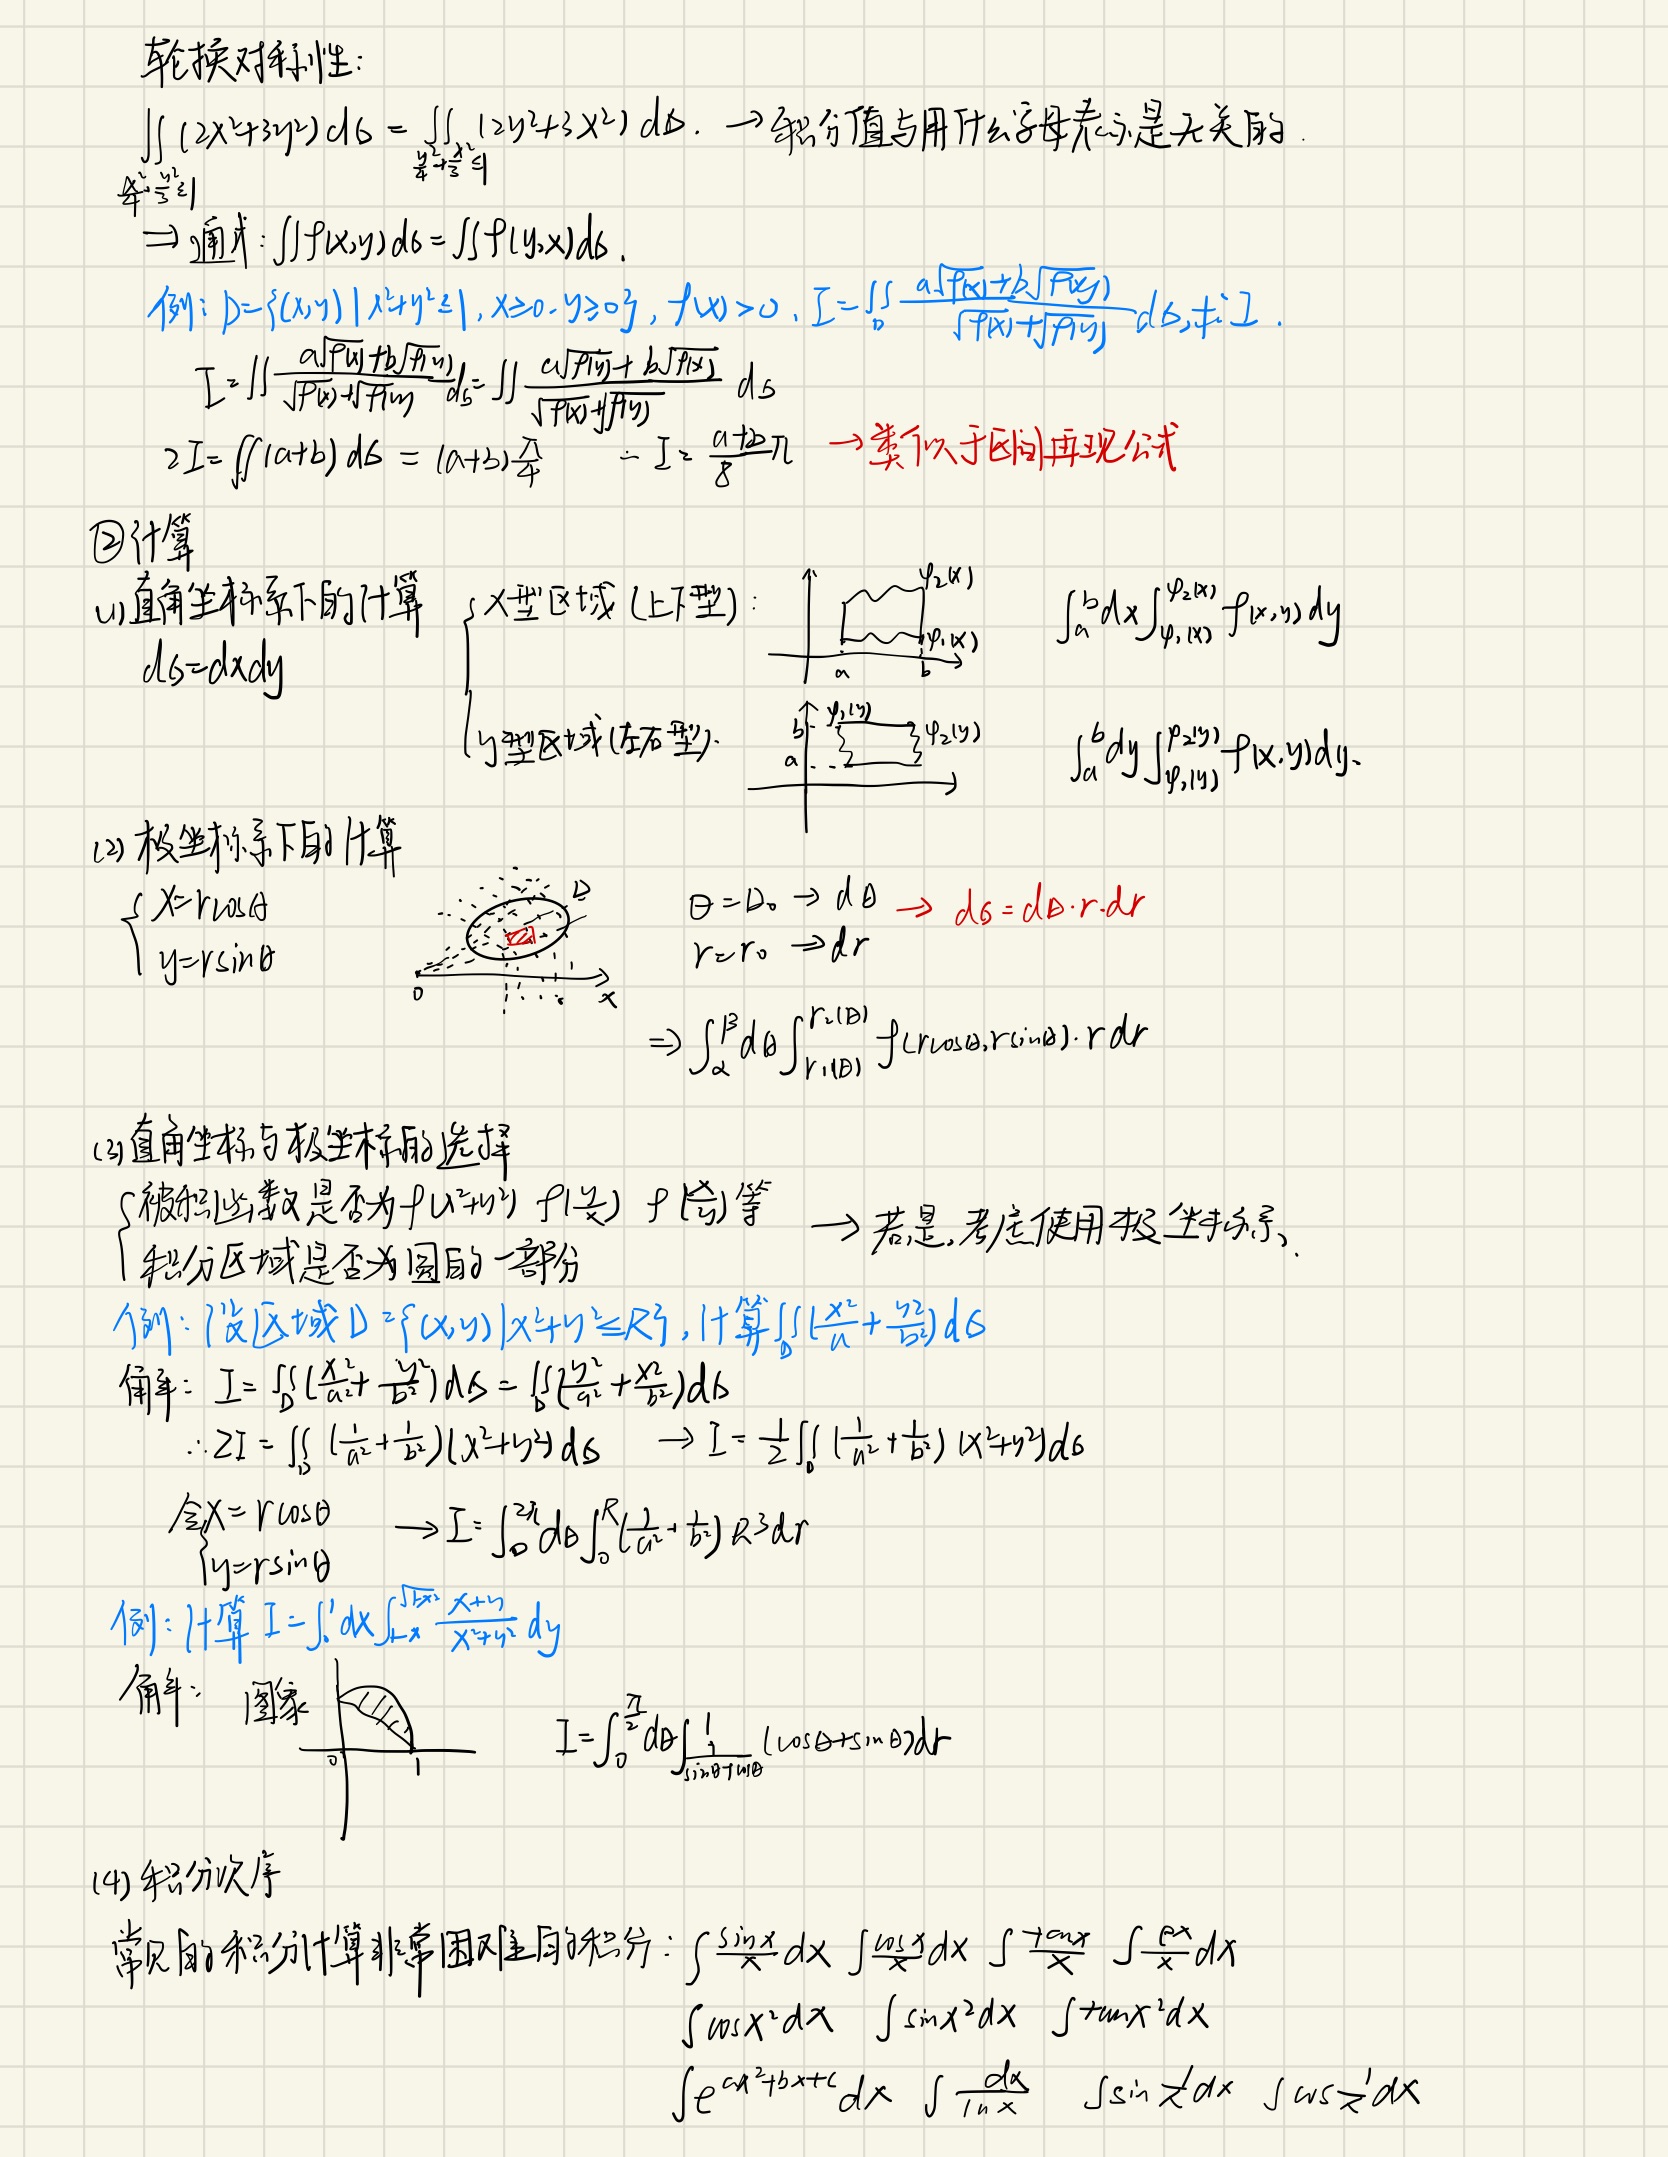 轮换对称性:
∬ (2x²+3y²) dσ = ∬ (2y²+3x²) dσ. → 积分值与用什么字母表示是无关的.
x²/4+y²/3≤1 y²/4+x²/3≤1
⇒ 通式: ∬f(x,y)dσ=∬f(y,x)dσ.
例: D={(x,y)|x²+y²≤1, x≥0. y≥0}, f(x)>0, I=∬_D (a√f(x)+b√f(y))/(√f(x)+√f(y)) dσ, 求I.
I=∬ (a√f(x)+b√f(y))/(√f(x)+√f(y)) dσ=∬ (a√f(y)+b√f(x))/(√f(x)+√f(y)) dσ
2I=∬(a+b) dσ = (a+b)π/4 ∴ I= (a+b)/8 π → 类似于区间再现公式
②计算
(1)直角坐标系下的计算 { x型区域 (上下型): φ₂(x) φ₁(x) a b ∫_a^b dx∫_{φ₁(x)}^{φ₂(x)} f(x,y)dy
dσ=dxdy
y型区域(左右型). b a φ₁(y) φ₂(y) ∫_a^b dy∫_{φ₁(y)}^{φ₂(y)} f(x,y)dy.
(2) 极坐标系下的计算
{ x=rcosθ D 0 x θ=θ₀ → dθ → dσ=dθ·r·dr
y=rsinθ r=r₀ → dr
⇒ ∫_α^β dθ∫_{r₁(θ)}^{r₂(θ)} f(rcosθ,rsinθ)·r dr
(3)直角坐标与极坐标的选择
{ 被积函数是否为f(x²+y²) f(y/x) f(x/y)等 → 若是,考虑使用极坐标系.
积分区域是否为圆的一部分
例: 设区域D={(x,y)|x²+y²≤R}, 计算∬_D(x²/a+y²/b²)dσ
解: I=∬_D(x²/a²+y²/b²)dσ=∬_D(y²/a²+x²/b²)dσ
∴2I=∬_D (1/a²+1/b²)(x²+y²)dσ → I=1/2∬_D (1/a²+1/b²) (x²+y²)dσ
令{x=rcosθ → I=∫_0^{2π} dθ∫_0^R(1/a²+1/b²) R³dr
y=rsinθ
例: 计算 I=∫_0^1 dx∫_{1-x}^{√1-x²} (x+y)/(x²+y²) dy
解: 图象 0 1 I=∫_0^{π/2} dθ∫_{1/(sinθ+cosθ)}^1 (cosθ+sinθ)dr
(4) 积分次序
常见的积分计算非常困难的积分: ∫sinx/x dx ∫cosx/x dx ∫tanx/x ∫eˣ/x dx
∫cosx²dx ∫sinx²dx ∫tanx²dx
∫e^{ax²+bx+c}dx ∫dx/lnx ∫sin 1/x dx ∫cos 1/x dx